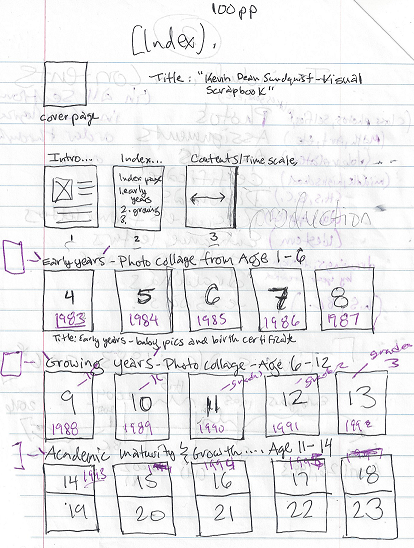 100pp
[Index].
Title: "Kevin Dean Sundquist-Visual
Scrapbook"
cover page
Intro... Index... Contents/Time scale
Index page
1. early
years
2- growing
3.
1 2 3
organization
Early years - Photo collage from Age 1-6
4 5 6 7 8
1983 1984 1985 1986 1987
Title: Early years - baby pics and birth certificate
Growing years - Photo collage - Age 6-12
K grade 1 grade 2 grade 3
9 10 11 12 13
1988 1989 1990 1991 1992
Academic maturity & Growth.... Age 11-14
14 1993 15 16 17 18
19 20 21 22 23